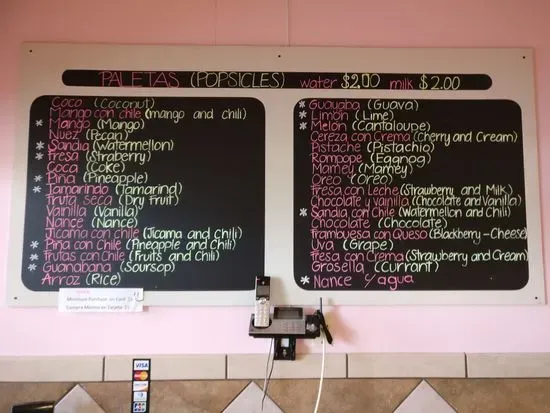 PALETAS (POPSICLES) water $2.00 milk $2.00
Coco (Coconut)
Mango con chile (mango and chili)
* Mango (Mango)
Nuez (Pecan)
* Sandia (Watermellon)
* Fresa (Straberry)
Coca (Coke)
* Piña (Pineapple)
* Tamarindo (Tamarind)
Fruta Seca (Dry fruit)
Vainilla (Vanilla)
Nance (Nance)
Jicama con Chile (Jicama and Chili)
* Piña con Chile (Pineapple and Chili)
* Frutas con Chile (Fruits and Chili)
* Guanabana (Soursop)
Arroz (Rice)
* Guayaba (Guava)
* Limon (Lime)
* Melon (Cantaloupe)
Cereza con Crema (Cherry and Cream)
Pistache (Pistachio)
Rompope (Eggnog)
Mamey (Mamey)
Oreo (Oreo)
Fresa con Leche (Strawberry and Milk)
Chocolate y Vainilla (Chocolate and Vanilla)
* Sandia con Chile (Watermellon and Chili)
Chocolate (Chocolate)
Frambuesa con Queso (Blackberry-Cheese)
Uva (Grape)
Fresa con Crema (Strawberry and Cream)
Grosella (Currant)
* Nance y agua
Minimum Purchase on Card $5
Compra Minima en Tarjeta $5
VISA